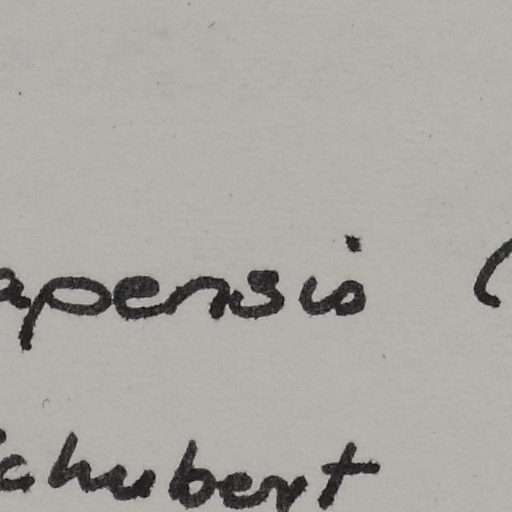 apensis (
chubert